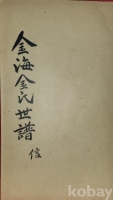 金海金氏世譜
信
kobay